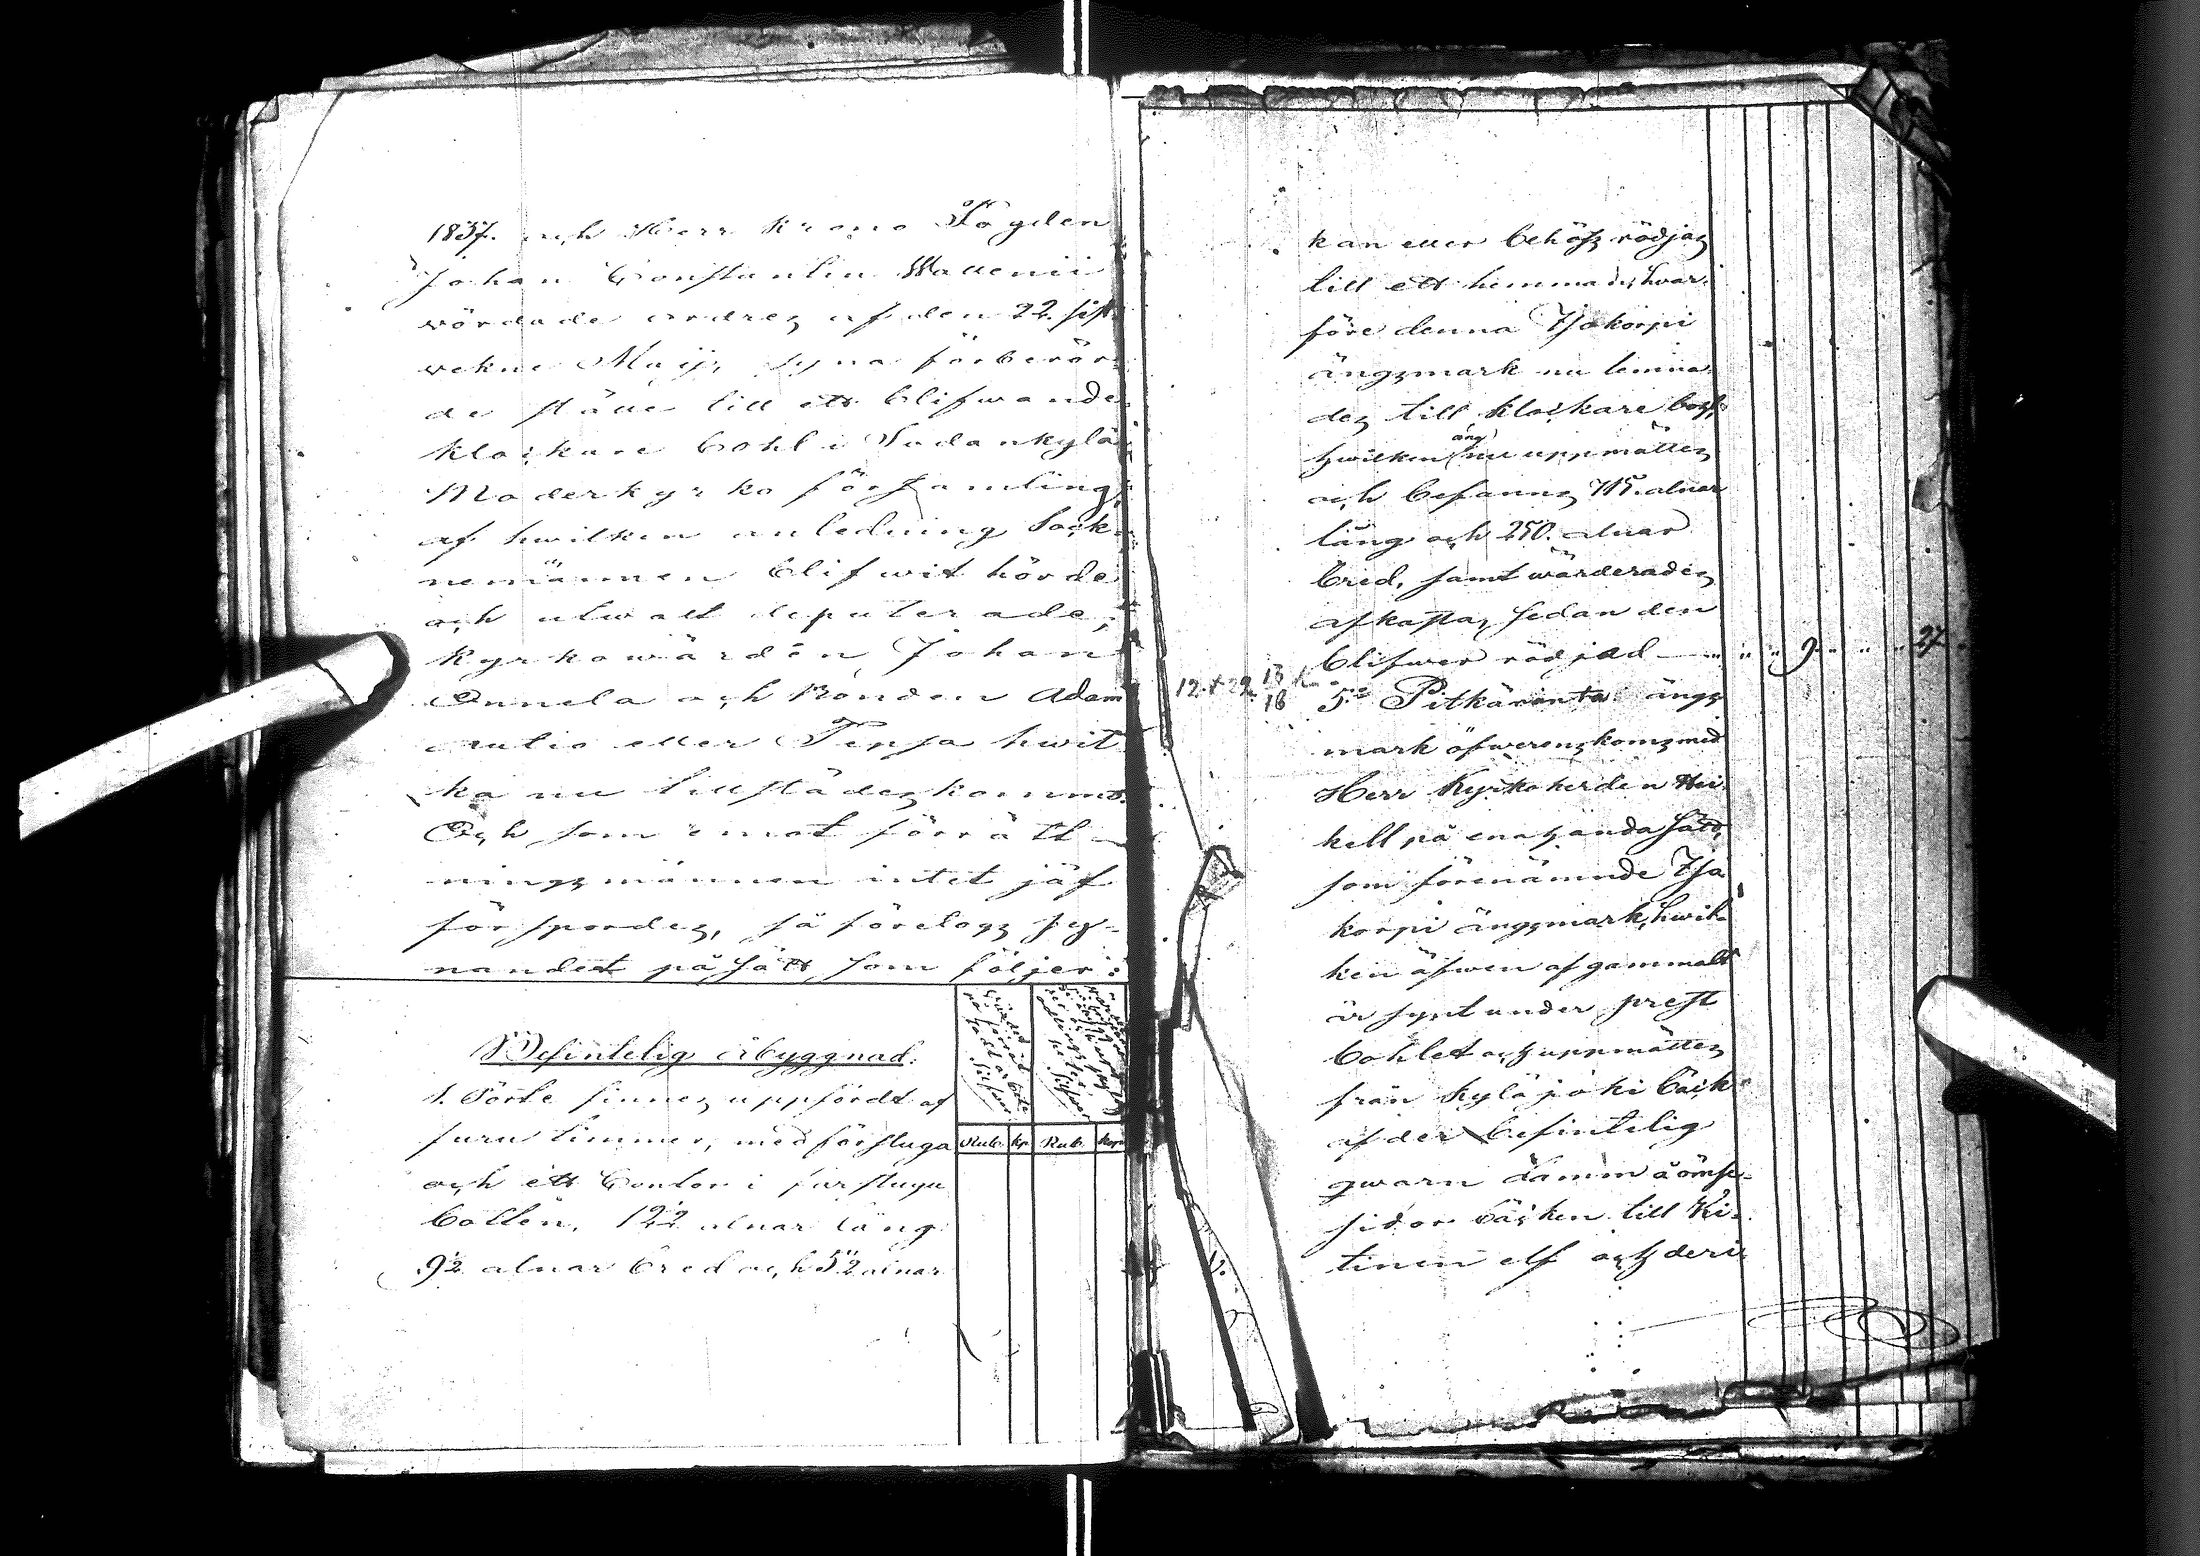 1837. och Herr Krono Fogden
Johan Constantin Wallenii
vördade ordres af den 22. sist-
vekne Maij, syna förberör-
de ställe till ett blifwande
klockare bohl i Sodankylä
Moderkyrko församling;
af hwilken anledning Sock-
nemännen blifwit hörde
och utwalt deputerade,
Kyrkowärden Johan
Onnela och Bonden Adam
Aulio eller Tepsa hwil-
ka nu tillstädeskommo.
Och som emot förrätt-
ningsmännen intet jäf
försportes, så företogs sy-
nandet på sätt som följer:
Befintelig åbyggnad.
1. Pörte finnes uppfördt af
furu timmer, med förstuga
och ett Contor i farstugu
botten, 12½ alnar lång
9½ alnar bred och 5½ alnar
Rub. kp. Rub. kop
kan eller behöfs rödjas
till ett hemman, hwar-
före denna Isokorpi
ängsmark nu lemna-
des till klockare bohl,
hwilken äng nu uppmättes
och befanns 715. alnar
lång och 250. alnar
bred, samt wärderades
afkasta, sedan den
blifwer rödjad 9. 27.
12. + 22. 13/16
5:o Pitkäranta ängs
mark öfwerenskoms med
Herr Kyrkoherden Hei-
kell på enahanda sätt,
som förenämnde Iso
korpi ängsmark, hwil-
ken äfwen af gammalt
är synt under prest
bohlet och uppmättes
från Kyläjoki bäck
af der befintelig
qwarn damm å ömse
sidor bäcken till Ki-
tinen elf och deri-